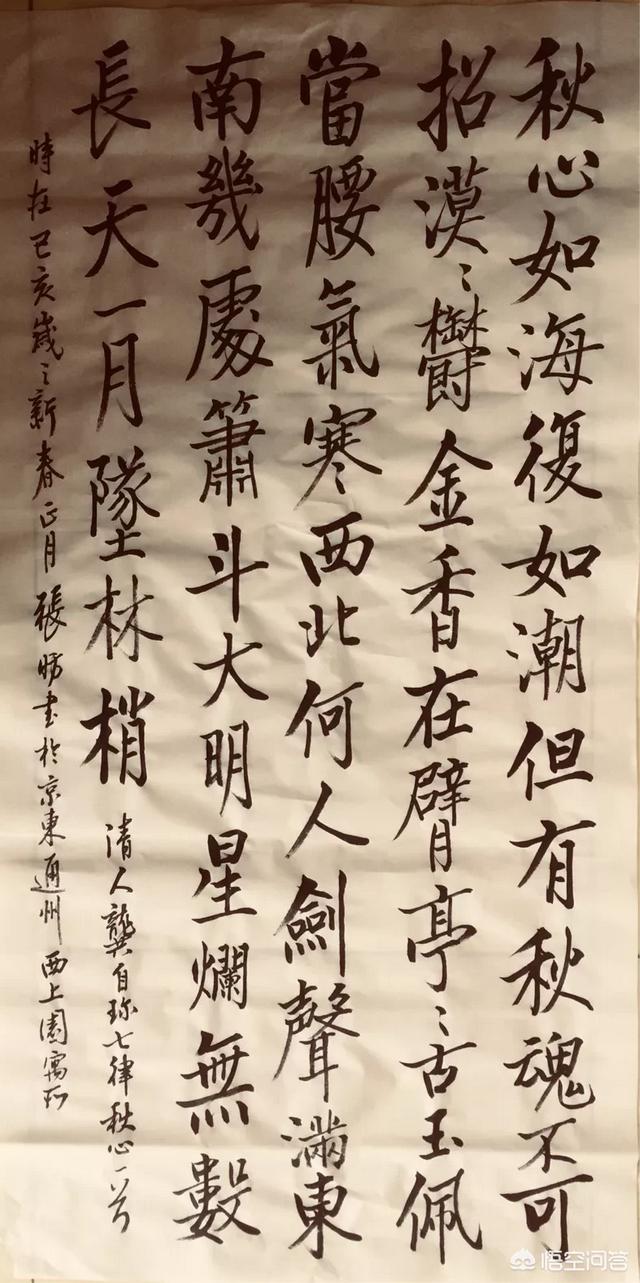 秋心如海復如潮但有秋魂不可
招漠〻鬱金香在臂亭〻古玉佩
當腰氣寒西北何人劍聲滿東
南幾處簫斗大明星爛無數
長天一月墜林梢
清人龔自珍七律秋心一首
時在己亥歲〻新春正月張昉書於京東通州西上園寓所
悟空问答